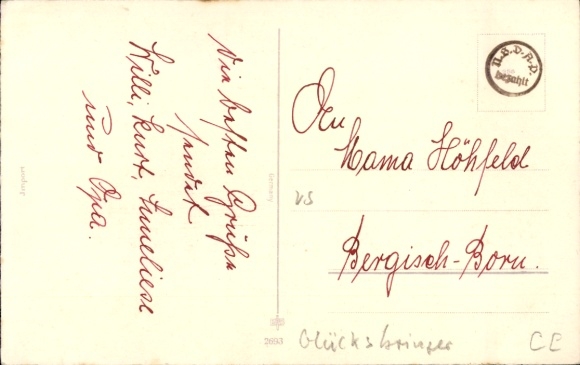 Die besten Grüße
sendet
Willi, Kurt, Anneliese
und Opa.
An
Mama Höhfeld
Bergisch-Born.
N.S.D.A.P.
bezahlt
Germany
2693
VS
Glücksbringer
CE